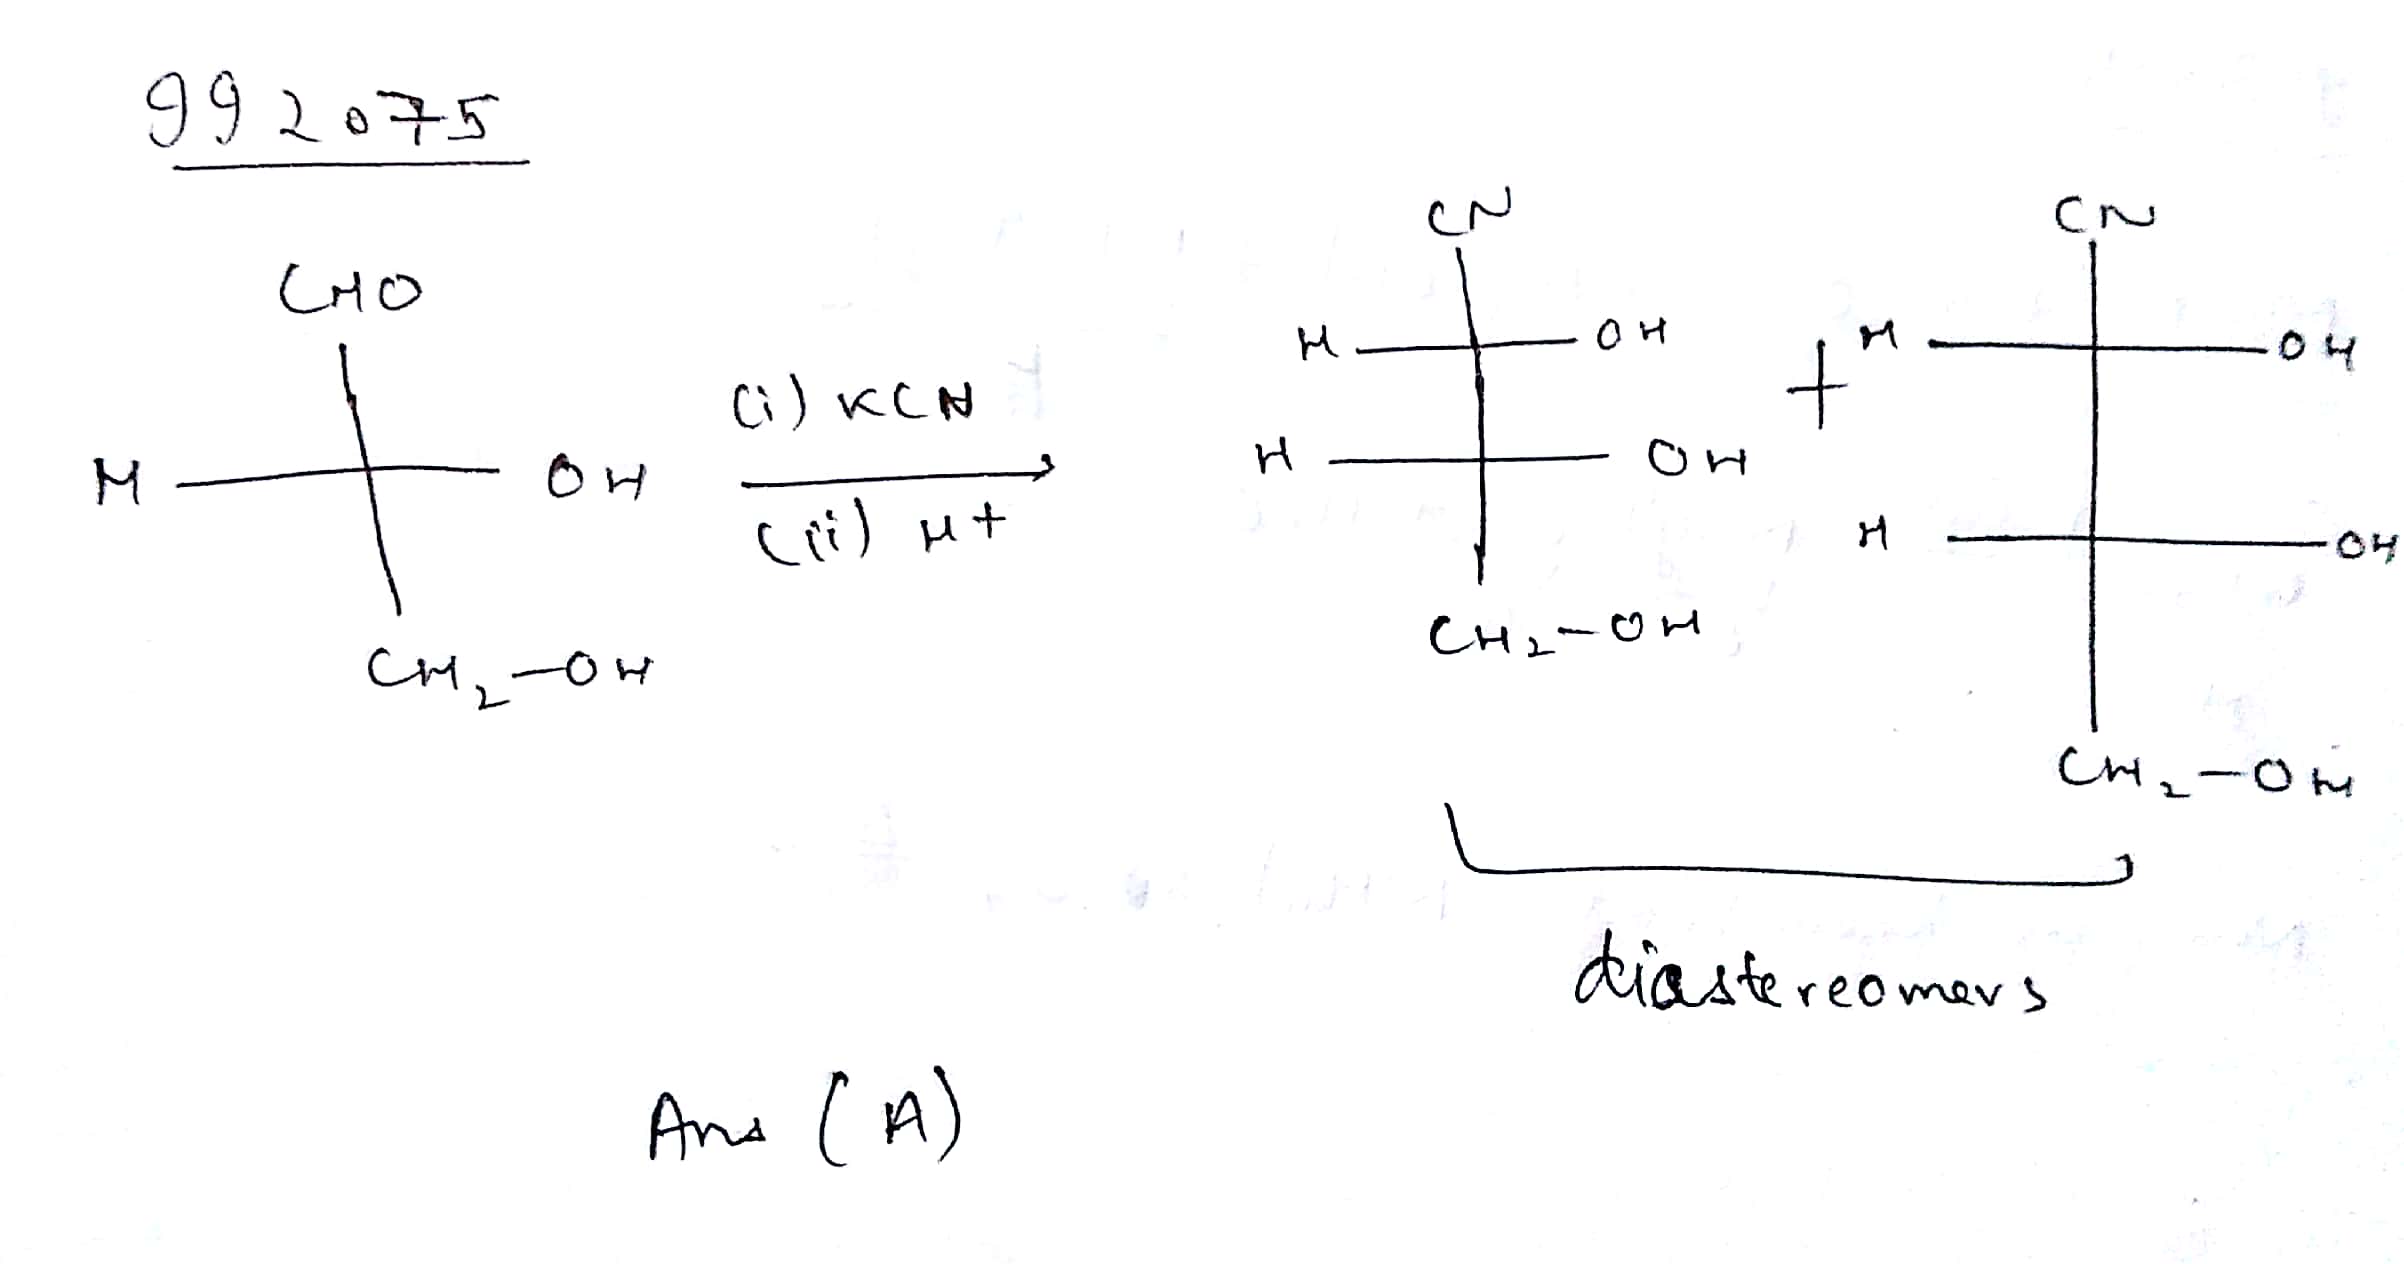 992075
CHO
H OH
CH2-OH
(i) KCN
(ii) H+
CN
H OH
H OH
CH2-OH
+
CN
H OH
H OH
CH2-OH
diastereomers
Ans (A)